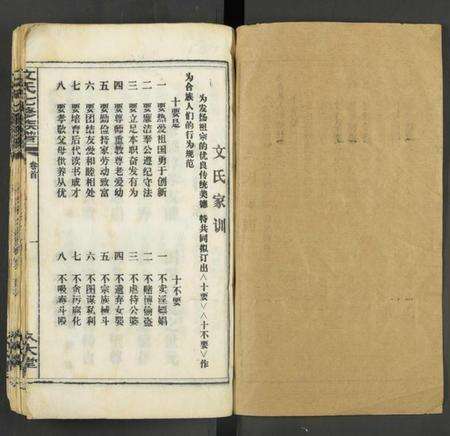 文氏家训
为发扬祖宗的优良传统美德 特共同拟订出〈十要〉〈十不要〉作
为合族人们的行为规范
十要是
一 要热爱祖国勇于创新
二 要廉洁奉公遵纪守法
三 要立足本职奋发有为
四 要尊师重教尊老爱幼
五 要勤俭持家劳动致富
六 要团结友爱和睦相处
七 要培育后代读书成才
八 要孝敬父母供养从优
十不要
一 不卖淫嫖娼
二 不赌博偷盗
三 不虐待公婆
四 不遗弃女婴
五 不宗族械斗
六 不图谋私利
七 不贪污腐化
八 不吸毒斗殴
卷首
一